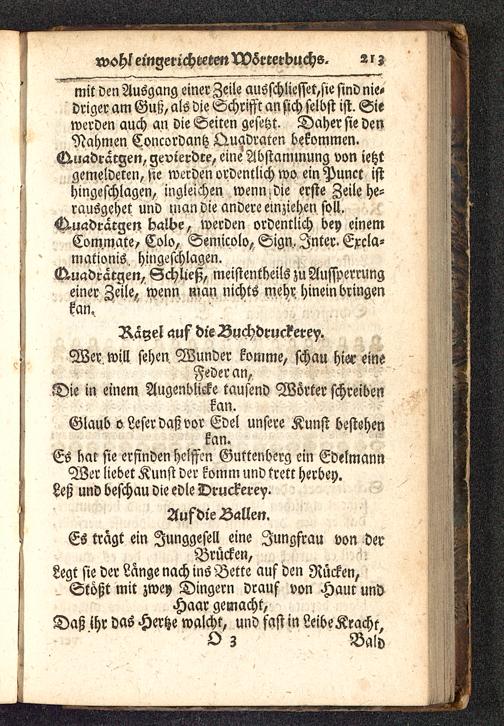 wohl eingerichteten Wörterbuchs. 213
mit den Ausgang einer Zeile ausschliesset, sie sind nie-
driger am Guß, als die Schrifft an sich selbst ist. Sie
werden auch an die Seiten gesetzt. Daher sie den
Nahmen Concordantz Quadraten bekommen.
Quadrätgen, gevierdte, eine Abstammung von ietzt
gemeldeten, sie werden ordentlich wo ein Punct ist
hingeschlagen, ingleichen wenn die erste Zeile he-
rausgehet und man die andere einziehen soll.
Quadrätgen halbe, werden ordentlich bey einem
Commate, Colo, Semicolo, Sign. Inter. Excla-
mationis hingeschlagen.
Quadrätgen, Schließ, meistentheils zu Aussperrung
einer Zeile, wenn man nichts mehr hinein bringen
kan.
Rätzel auf die Buchdruckerey.
Wer will sehen Wunder komme, schau hier eine
Feder an,
Die in einem Augenblicke tausend Wörter schreiben
kan.
Glaub o Leser daß vor Edel unsere Kunst bestehen
kan.
Es hat sie erfinden helffen Guttenberg ein Edelmann
Wer liebet Kunst der komm und trett herbey.
Leß und beschau die edle Druckerey.
Auf die Ballen.
Es trägt ein Junggesell eine Jungfrau von der
Brücken,
Legt sie der Länge nach ins Bette auf den Rücken,
Stößt mit zwey Dingern drauf von Haut und
Haar gemacht,
Daß ihr das Hertze walcht, und fast in Leibe Kracht,
O 3 Bald